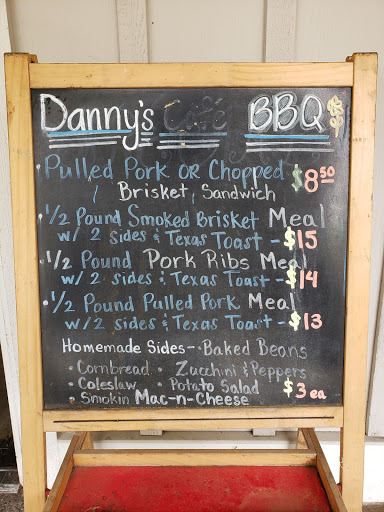 Danny's Café BBQ
Pulled Pork or Chopped $8.50
Brisket, Sandwich
1/2 Pound Smoked Brisket Meal
w/ 2 sides & Texas Toast - $15
1/2 Pound Pork Ribs Meal
w/ 2 sides & Texas Toast - $14
1/2 Pound Pulled Pork Meal
w/ 2 sides & Texas Toast - $13
Homemade Sides - Baked Beans
• Cornbread • Zucchini & Peppers
• Coleslaw • Potato Salad $3 ea
• Smokin Mac-n-Cheese